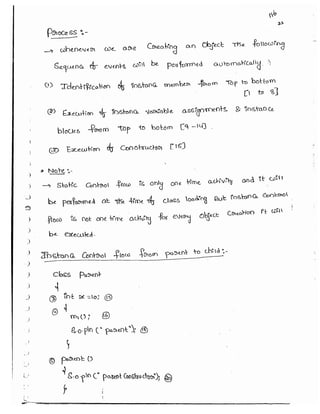 Process :-
→ whenever we are Creating an Object The following
Sequence of events will be performed automatically
(1) Identification of instance members from Top to bottom
[1 to 8]
(2) Execution of instance variable assignments & instance
blocks from top to bottom [9-14].
(3) Execution of Constructor [15]
* Note :-
→ Static Control flow is only one time activity and it will
be performed at the time of class loading But instance Control
flow is not one time activity for every object Creation it will
be executed.
Instance Control flow from parent to child :-
class Parent
{
int x=10;
{
m1();
S.o.pln("parent");
}
parent ()
{
S.o.pln("parent Constructor");
}